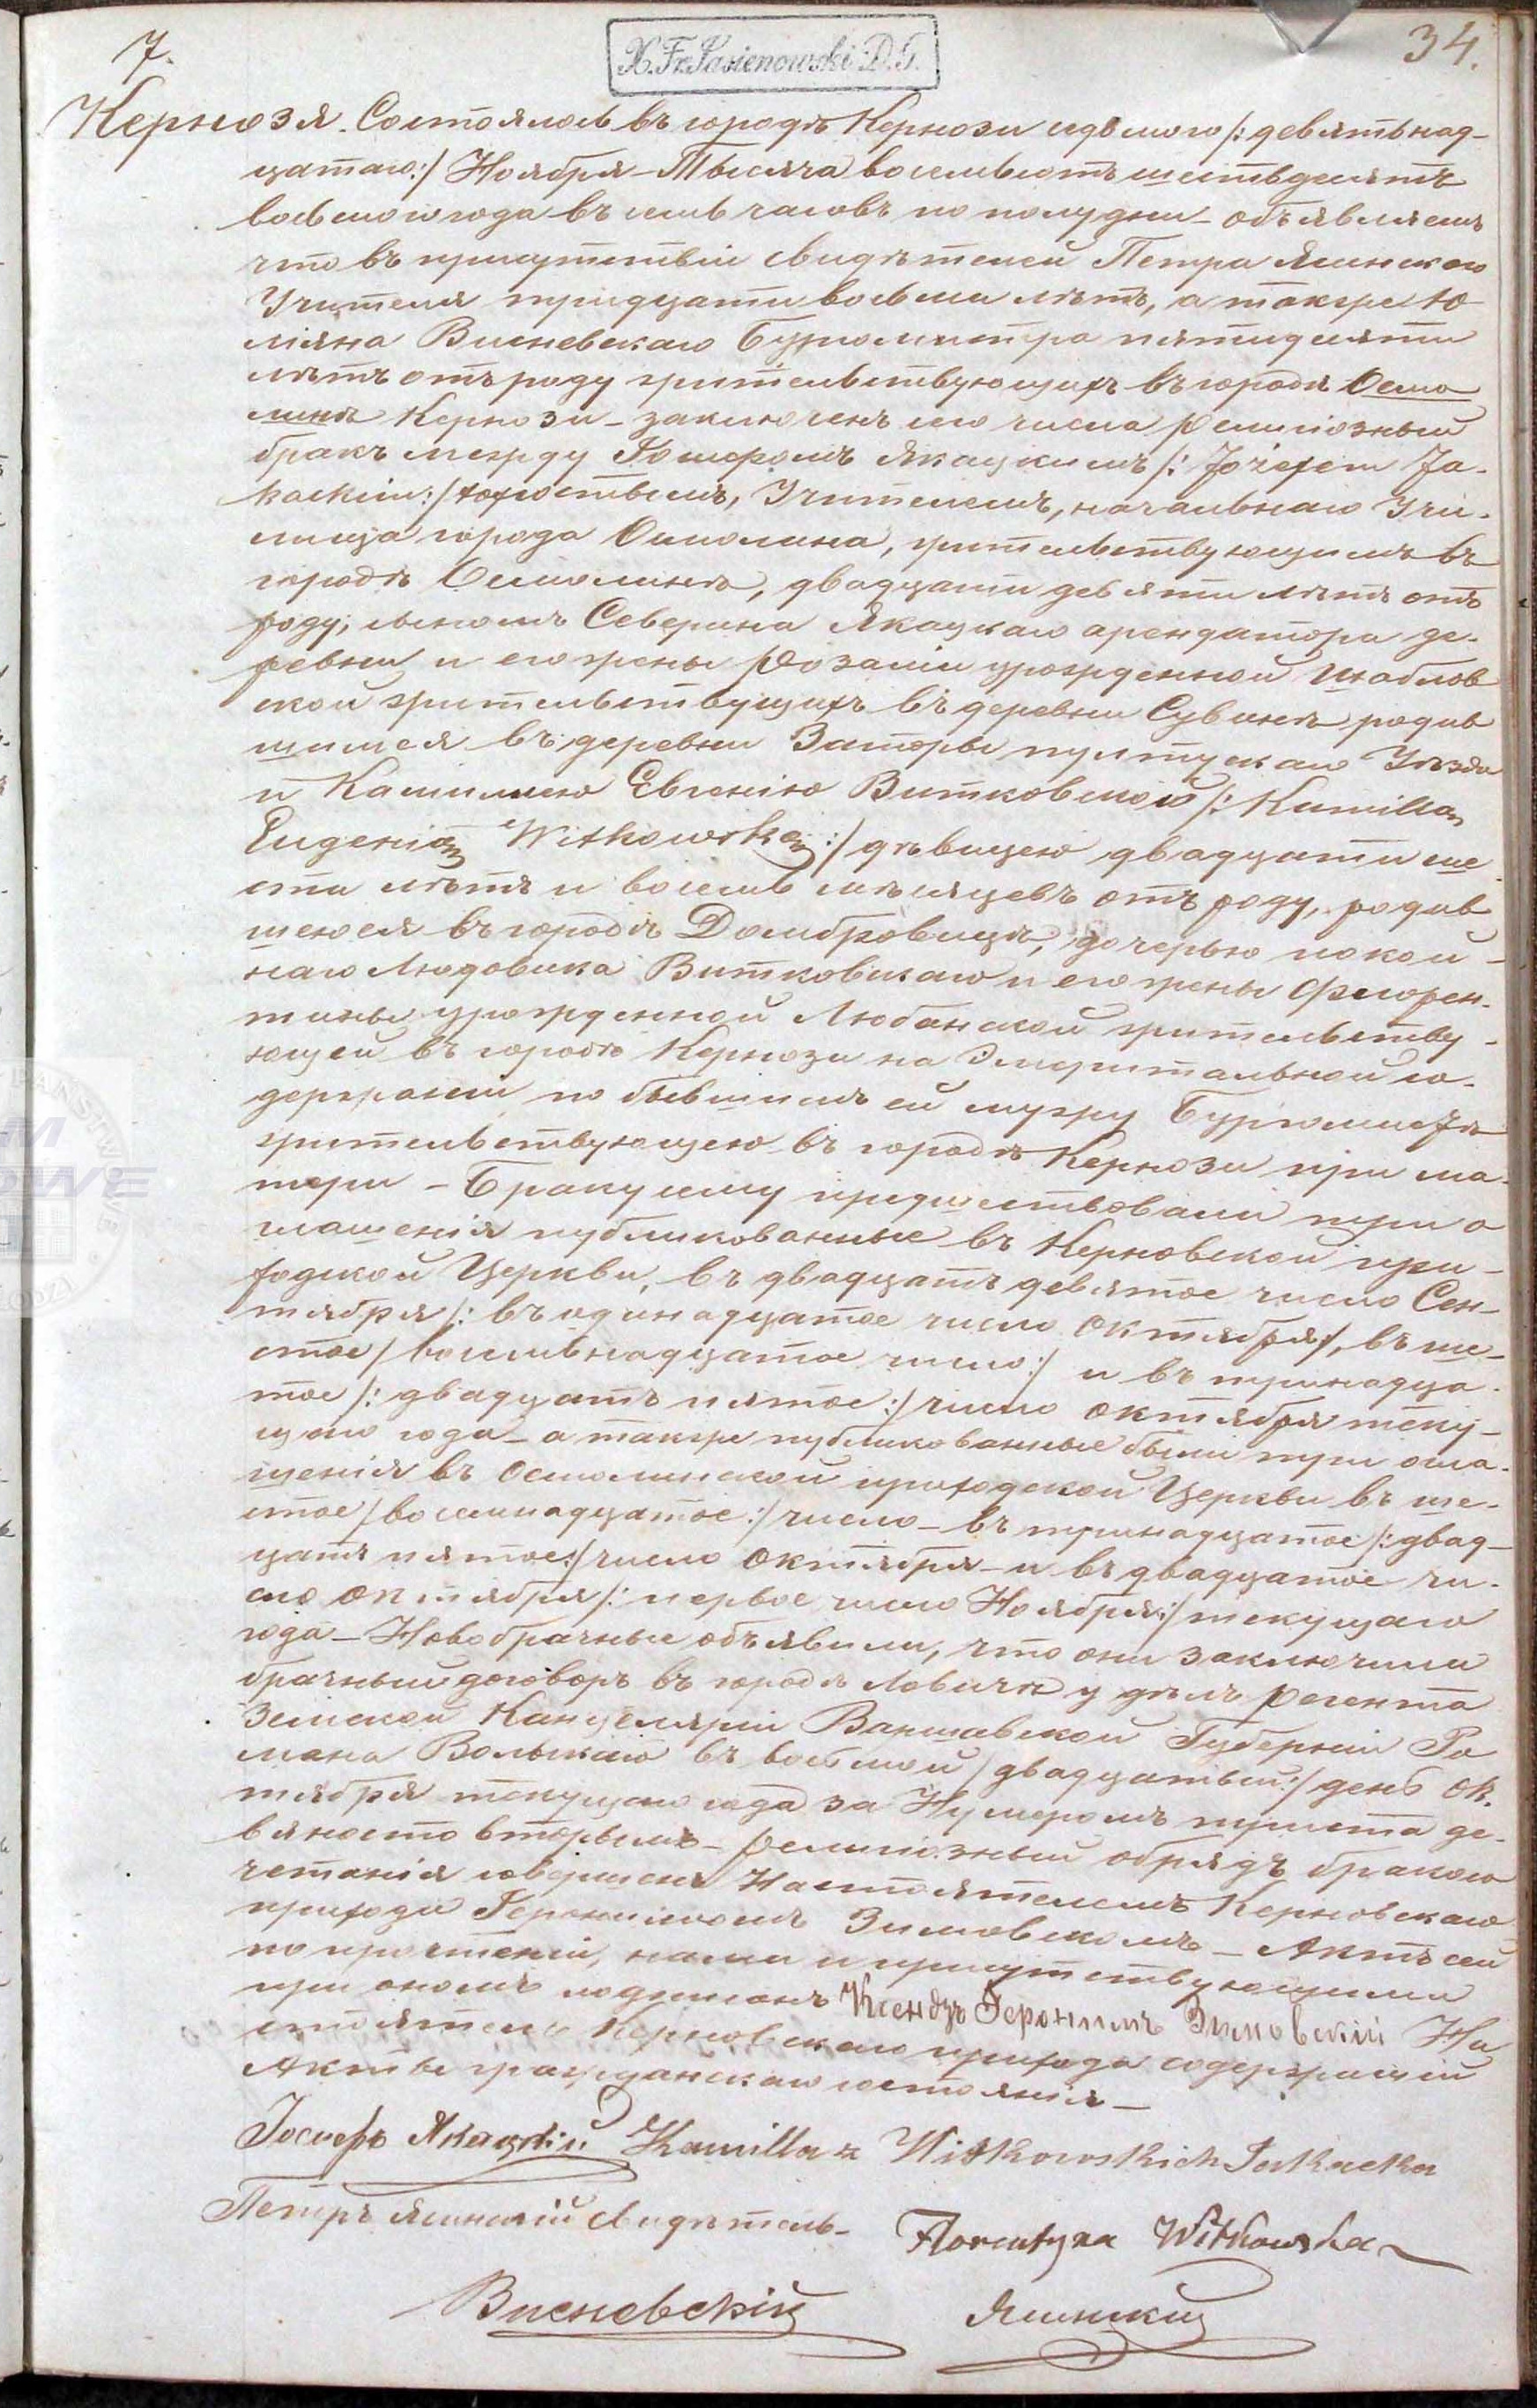 7.
X. Fr. Jasienowski D. G.
34.
Кернозя. Состоялось въ городѣ Кернози седьмого /: девятьнад-
цатаго :/ Ноября – Тысяча восемьсотъ шестьдесятъ
восьмого года въ семь часовъ по полудни – объявляемъ
что въ присутствіи свидѣтелей Петра Ясинского
Учителя тридцати восьми лѣтъ, а также Ю
ліяна Висневскаго Бургомистра пятидесяти
лѣтъ отъ роду жительствующихъ въ городѣ Осмо
линѣ Кернози – заключенъ сего числа религіозный
бракъ между Іосифомъ Якацкимъ /: Józefem Ja-
kackim :/ холостымъ, Учителемъ, начальнаго Учи-
лища города Осмолина, жительствующимъ въ
городѣ Осмолинѣ, двадцати девяти лѣтъ отъ
роду, сыномъ Северина Якацкаго арендатора де-
ревни и его жены Розаліи урожденной Шаблов
ской жительствующихъ въ деревни родив
шимся въ деревни Заторы пултускаго Уѣзда
и Камиллею Евгенію Витковской /: Kamillą
Eugenią Witkowską :/ дѣвицею двадцати ше
сти лѣтъ и восемь мѣсяцевъ отъ роду, родив
шеюся въ городѣ Домбровицѣ, дочерью покой-
наго Людовика Витковскаго и его жены Флорен-
тины урожденной Любанской жительству-
ющей въ городѣ Кернози на Эмеритальной со-
держаніи по бывшимъ ей мужу Бургомистрѣ
жительствующею въ городѣ Кернози при ма-
тери – Браку сему предшествовали три о
глашенія публикованные въ Керновской при-
ходской Церкви, въ двадцать девятое число Сен-
тября /: въ одинадцатое число Октября :/, въ ше-
стое / восемьнадцатое число :/ и въ тринадца-
тое /: двадцать пятое :/ число Октября теку-
щаго года – а также публикованные были три огла-
шенія въ Осмолинской приходской Церкви въ ше-
стое / восемнадцатое :/ число – въ тринадцатое /: двад-
цать пятое :/ число Октября – и въ двадцатое чи-
сло Октября /: первое число Ноября :/ текущаго
года – Новобрачные объявили, что они заключили
брачный договоръ въ городѣ Ловичѣ у дѣлъ Регента
Земской Канцеляріи Варшавской Губерніи Ро
мана Вольскаго въ восьмой / двадцатый :/ день Ок-
тября текущаго года за Нумеромъ триста де-
вяносто вторымъ – религіозный обрядъ бракосо
четанія совершенъ Настоятелемъ Керновскаго
прихода Геронимомъ Зимовскомъ – Актъ сей
по прочтеніи, нами и присутствующими
при ономъ подписанъ Ксендзъ Геронимъ Зимовскій На
стоятель Керновскаго прихода содержащій
Акты гражданскаго состоянія –
Іосифъ Якацкій Kamilla z Witkowskich Jakacka
Петръ Ясинскій свидѣтель – Florentyna Witkowska
Висневскій Ясинский